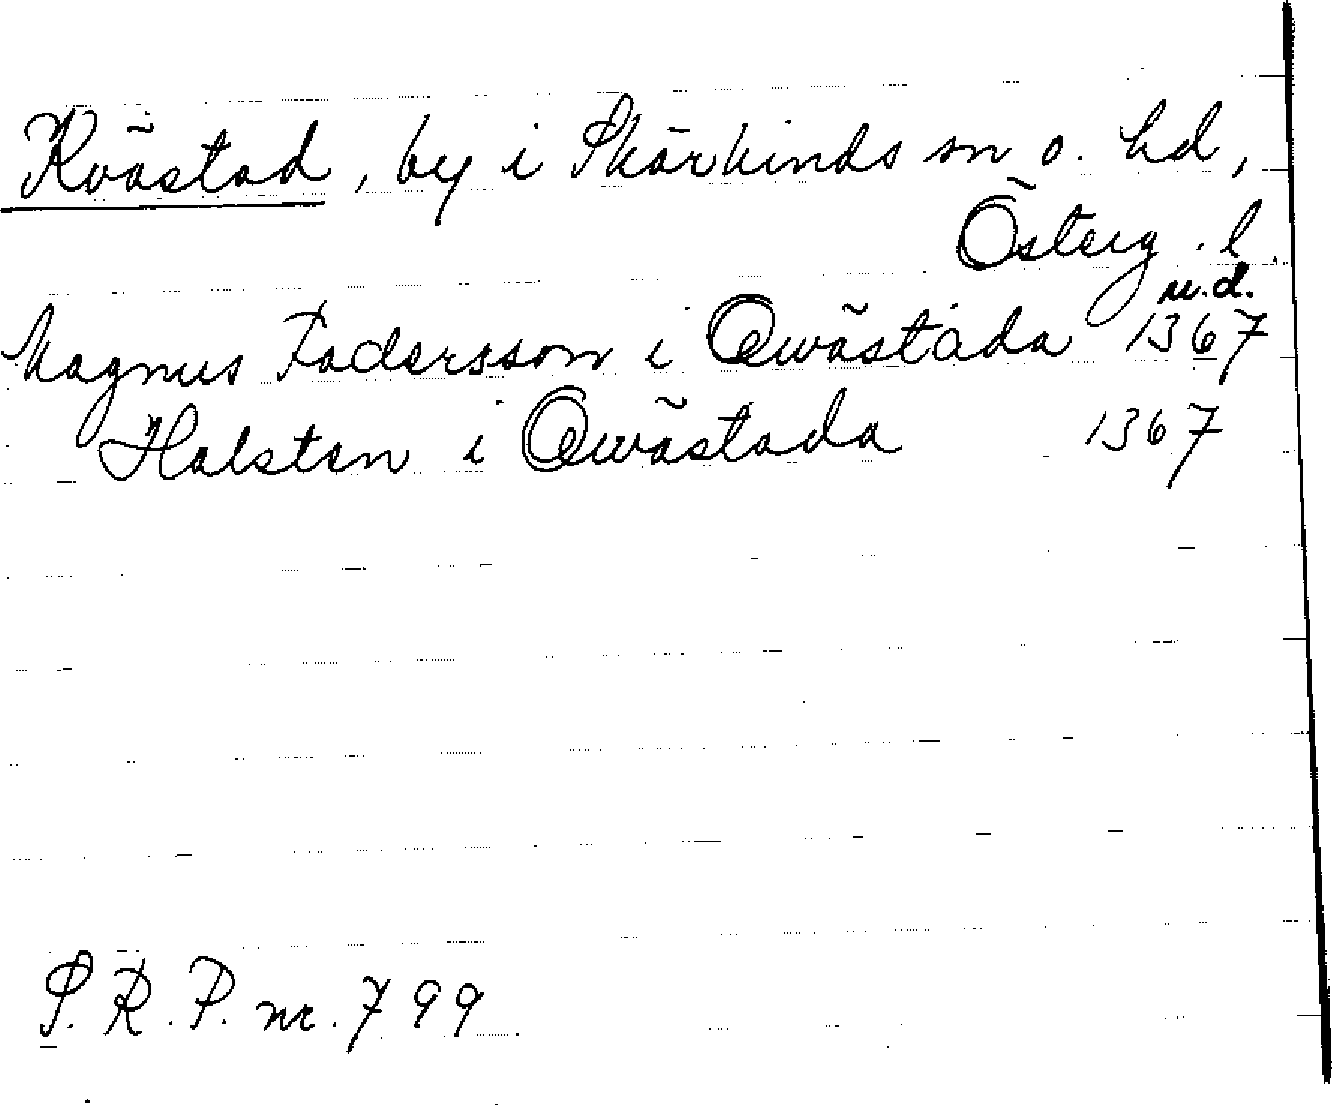 Kvästad, by i Skärkinds sn o. hd,
Österg. l.
u.d.
Magnus Fadersson i Qwästada 1367
Halsten i Qwästada 1367
S.R.P. nr. 799